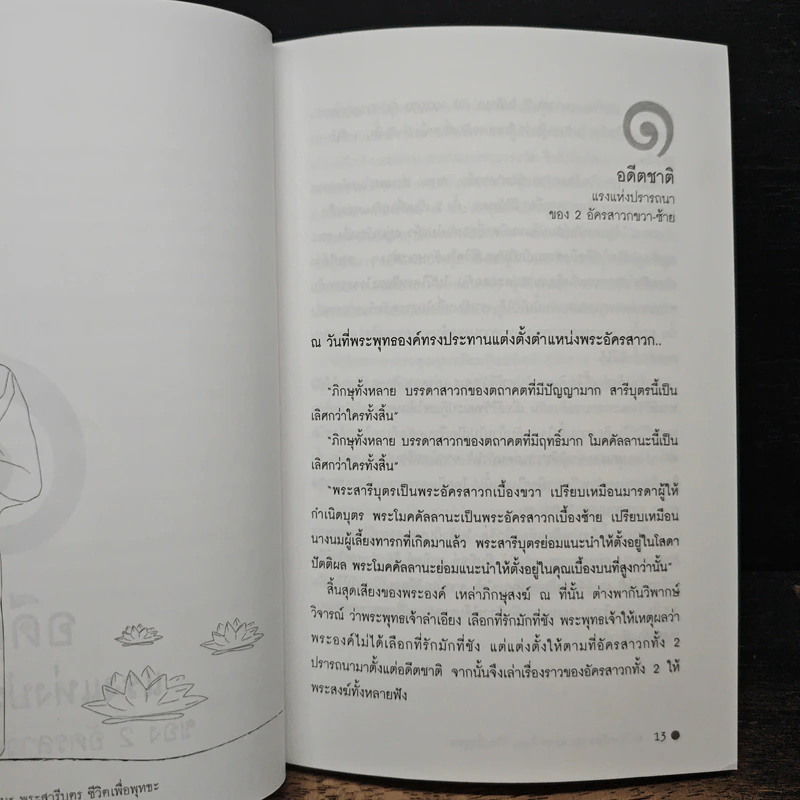 พระสารีบุตร ชีวิตเพื่อพุทธะ
๑
อดีตชาติ
แรงแห่งปรารถนา
ของ 2 อัครสาวกขวา-ซ้าย
ณ วันที่พระพุทธองค์ทรงประทานแต่งตั้งตำแหน่งพระอัครสาวก..
“ภิกษุทั้งหลาย บรรดาสาวกของตถาคตที่มีปัญญามาก สารีบุตรนี้เป็น
เลิศกว่าใครทั้งสิ้น”
“ภิกษุทั้งหลาย บรรดาสาวกของตถาคตที่มีฤทธิ์มาก โมคคัลลานะนี้เป็น
เลิศกว่าใครทั้งสิ้น”
“พระสารีบุตรเป็นพระอัครสาวกเบื้องขวา เปรียบเหมือนมารดาผู้ให้
กำเนิดบุตร พระโมคคัลลานะเป็นพระอัครสาวกเบื้องซ้าย เปรียบเหมือน
นางนมผู้เลี้ยงทารกที่เกิดมาแล้ว พระสารีบุตรย่อมแนะนำให้ตั้งอยู่ในโสดา
ปัตติผล พระโมคคัลลานะย่อมแนะนำให้ตั้งอยู่ในคุณเบื้องบนที่สูงกว่านั้น”
สิ้นสุดเสียงของพระองค์ เหล่าภิกษุสงฆ์ ณ ที่นั้น ต่างพากันวิพากษ์
วิจารณ์ ว่าพระพุทธเจ้าลำเอียง เลือกที่รักมักที่ชัง พระพุทธเจ้าให้เหตุผลว่า
พระองค์ไม่ได้เลือกที่รักมักที่ชัง แต่แต่งตั้งให้ตามที่อัครสาวกทั้ง 2
ปรารถนามาตั้งแต่อดีตชาติ จากนั้นจึงเล่าเรื่องราวของอัครสาวกทั้ง 2 ให้
พระสงฆ์ทั้งหลายฟัง
13